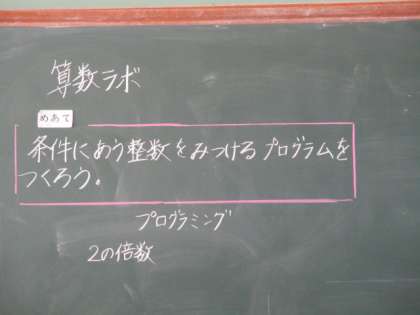 算数ラボ
めあて
条件にあう整数をみつけるプログラムを
つくろう。
プログラミング
2の倍数